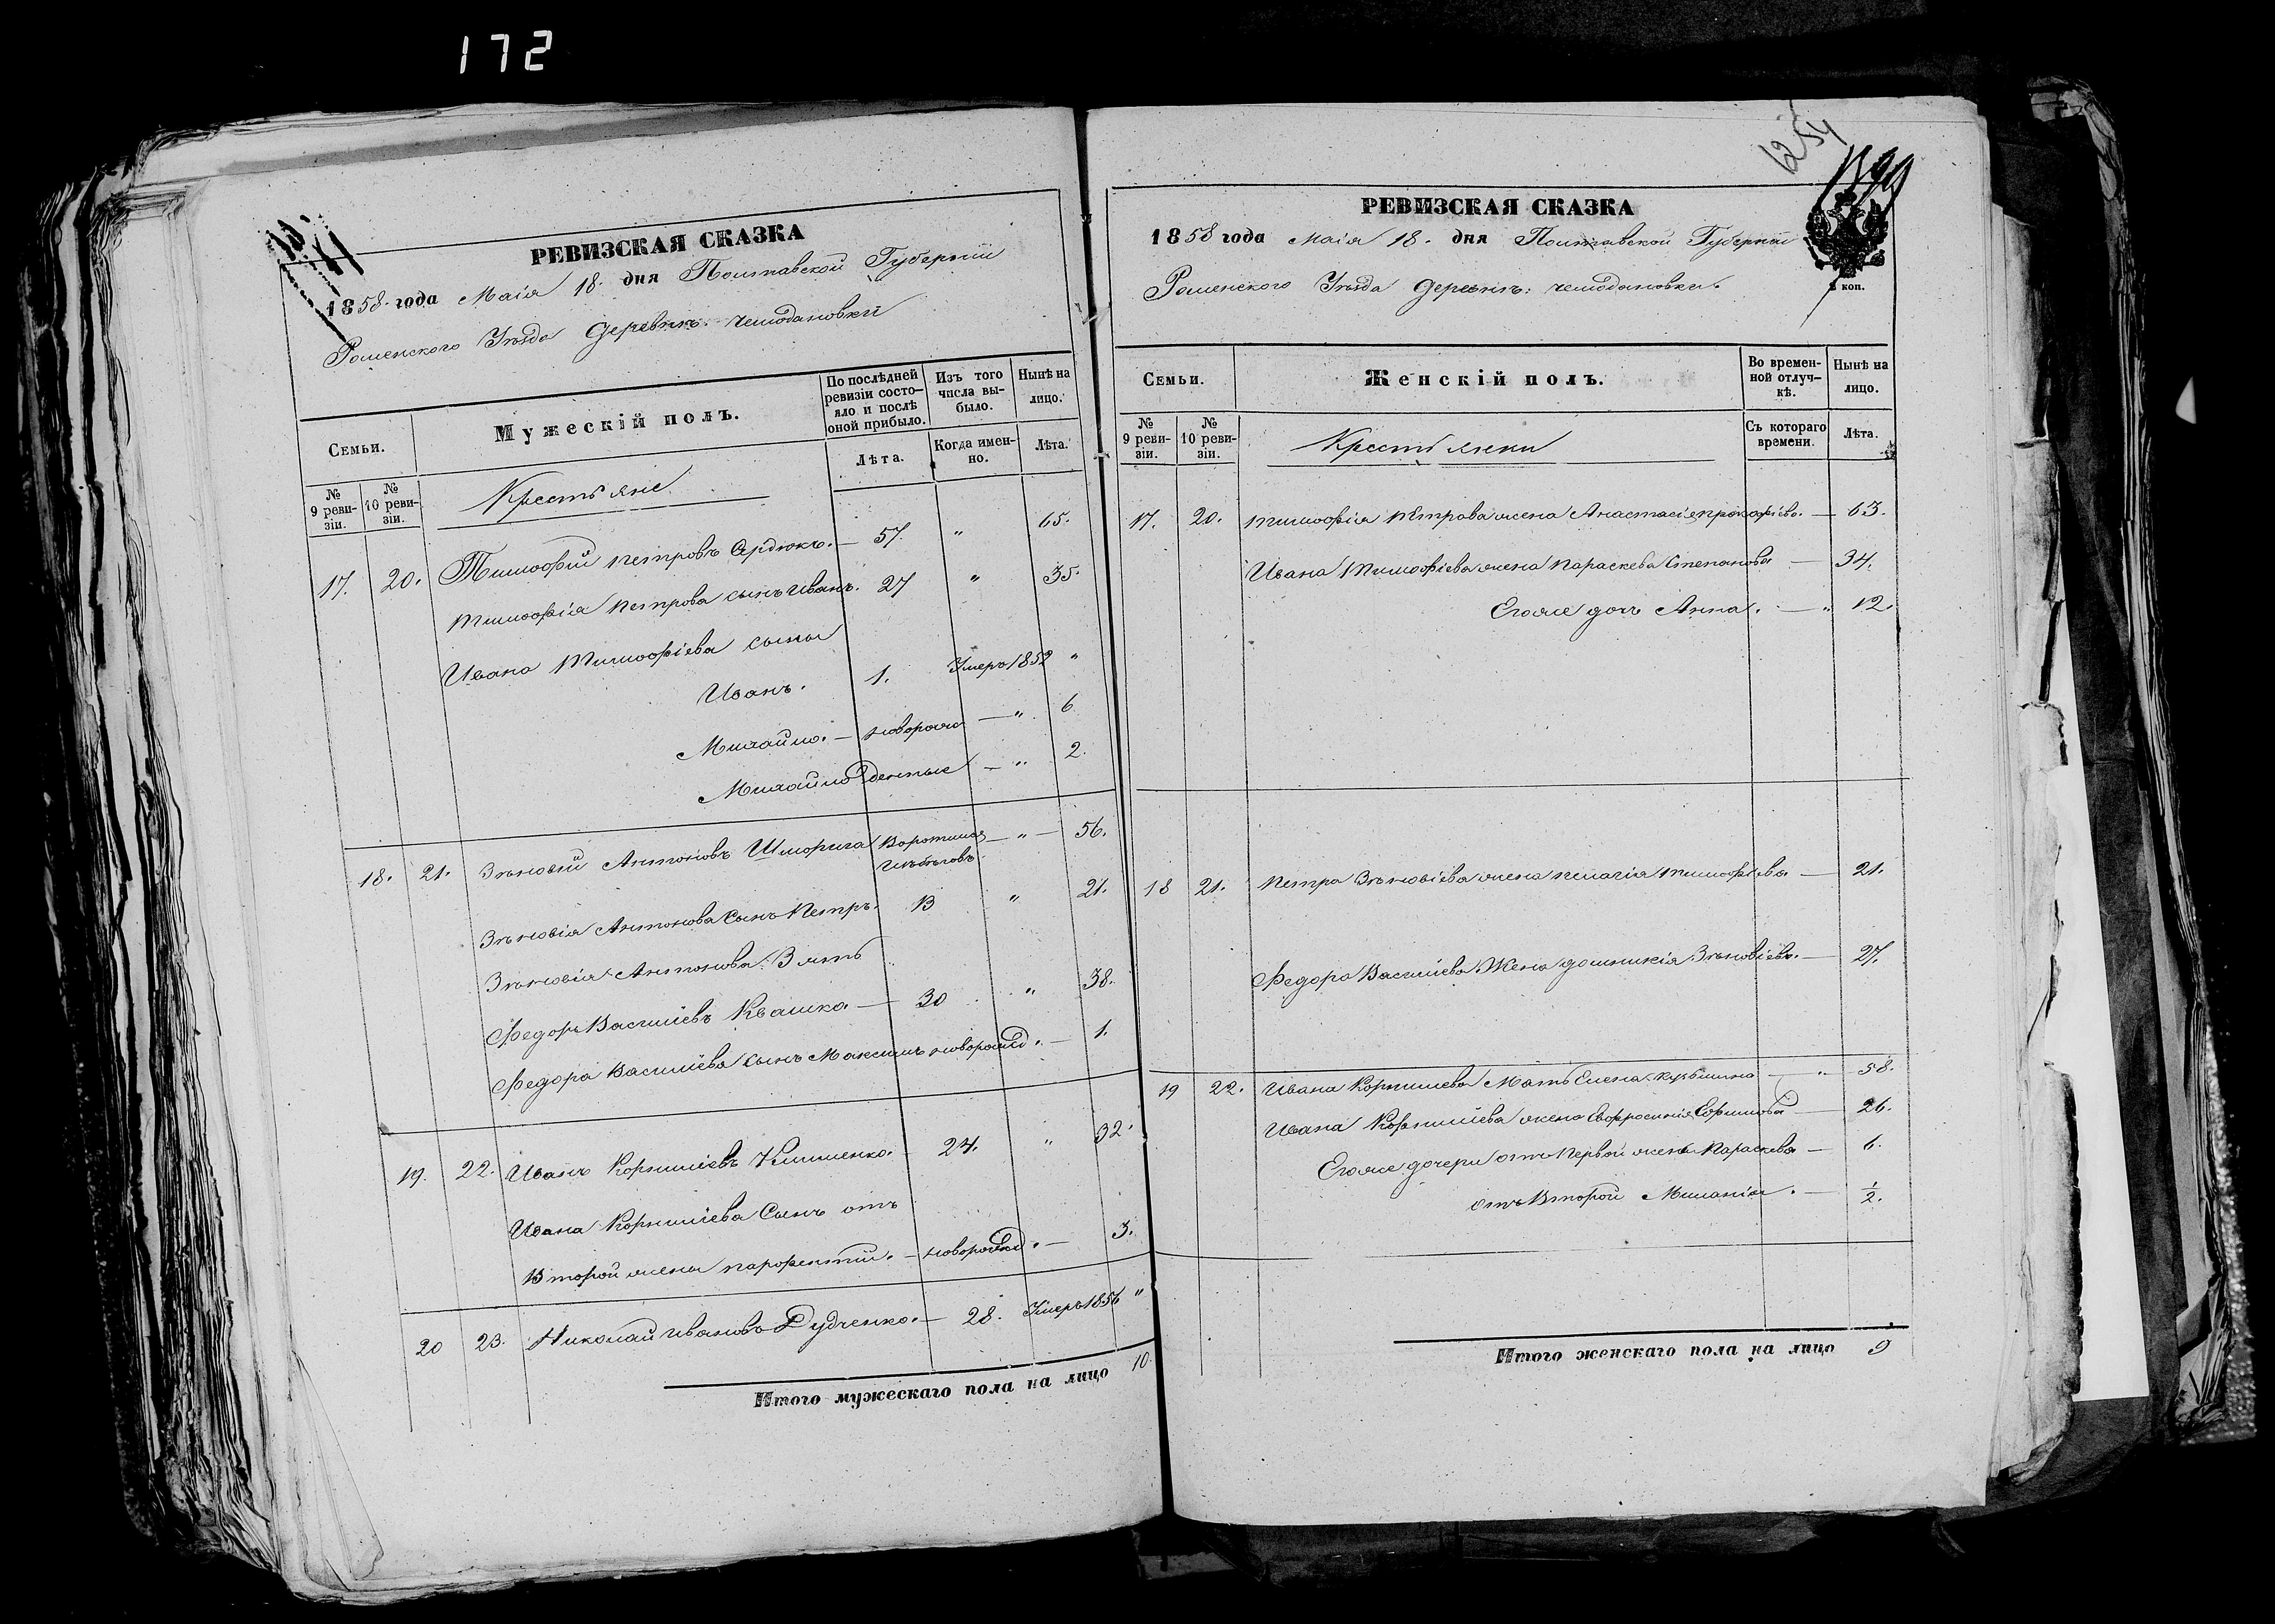 172
РЕВИЗСКАЯ СКАЗКА
1858 года Маія 18 дня Полтавской Губерніи
Роменского Уѣзда Деревнѣ чемодановки
Семьи.
Мужескій полъ.
По послѣдней ревизіи состо-
яло и послѣ оной прибыло.
Изъ того числа вы-
было.
Нынѣ на лицо.
№ 9 реви-
зіи.
№ 10 реви-
зіи.
Крестьяне
Лѣта.
Когда имен-
но.
Лѣта.
17. 20. Тимофій Петровъ Сердюкъ. — 57. " 65.
Тимофія Петрова сынъ Иванъ. 27 " 35.
Ивана Тимофіева сыны
Иванъ. 1. Умеръ 1852 "
Михайло. — новорож — " 6
Михайло денные — " 2.
18. 21. Зѣновій Антоновъ Шморига Воротился — " — 56.
изъ бѣговъ
Зѣновія Антонова Сынъ Петръ. 13 " 21.
Зѣновія Антонова Зять
Федоръ Василіевъ Квашка — 30 " 38.
Федора Василіева сынъ Максимъ новорожд. — 1.
19. 22. Иванъ Корниліевъ Клименко. 24. " 32.
Ивана Корниліева Сынъ отъ
Второй жены парфентій. — новорожд. — 3.
20 23. Николай Ивановъ Дудченко. — 28. Умеръ 1856 "
Итого мужескаго пола на лицо 10.
1254
РЕВИЗСКАЯ СКАЗКА
1858 года Маія 18. дня Полтавской Губерніи
Роменского Уѣзда Деревнѣ: чемодановки.
коп.
Семьи.
Женскій полъ.
Во времен-
ной отлуч-
кѣ.
Нынѣ на лицо.
№ 9 реви-
зіи.
№ 10 реви-
зіи.
Крестьянки
Съ котораго времени.
Лѣта.
17. 20. Тимофія Петрова жена Анастасія прокофіева. — 63.
Ивана Тимофіева жена Параскева Степанова — 34.
Егоже дочь Анна. — " 12.
18 21. Петра Зѣновіева жена пелагія тимофіева — 21.
Федора Василіева Жена домникія Зѣновіева. — 27.
19 22. Ивана Корнилиева Мать Елена кузьмина — " — 58.
Ивана Корниліева жена Евфросинія Ефимова — 26.
Егоже дочери отъ Первой жены Параскева — 6.
отъ Второй Миланія. — 1/2.
Итого женскаго пола на лицо 9